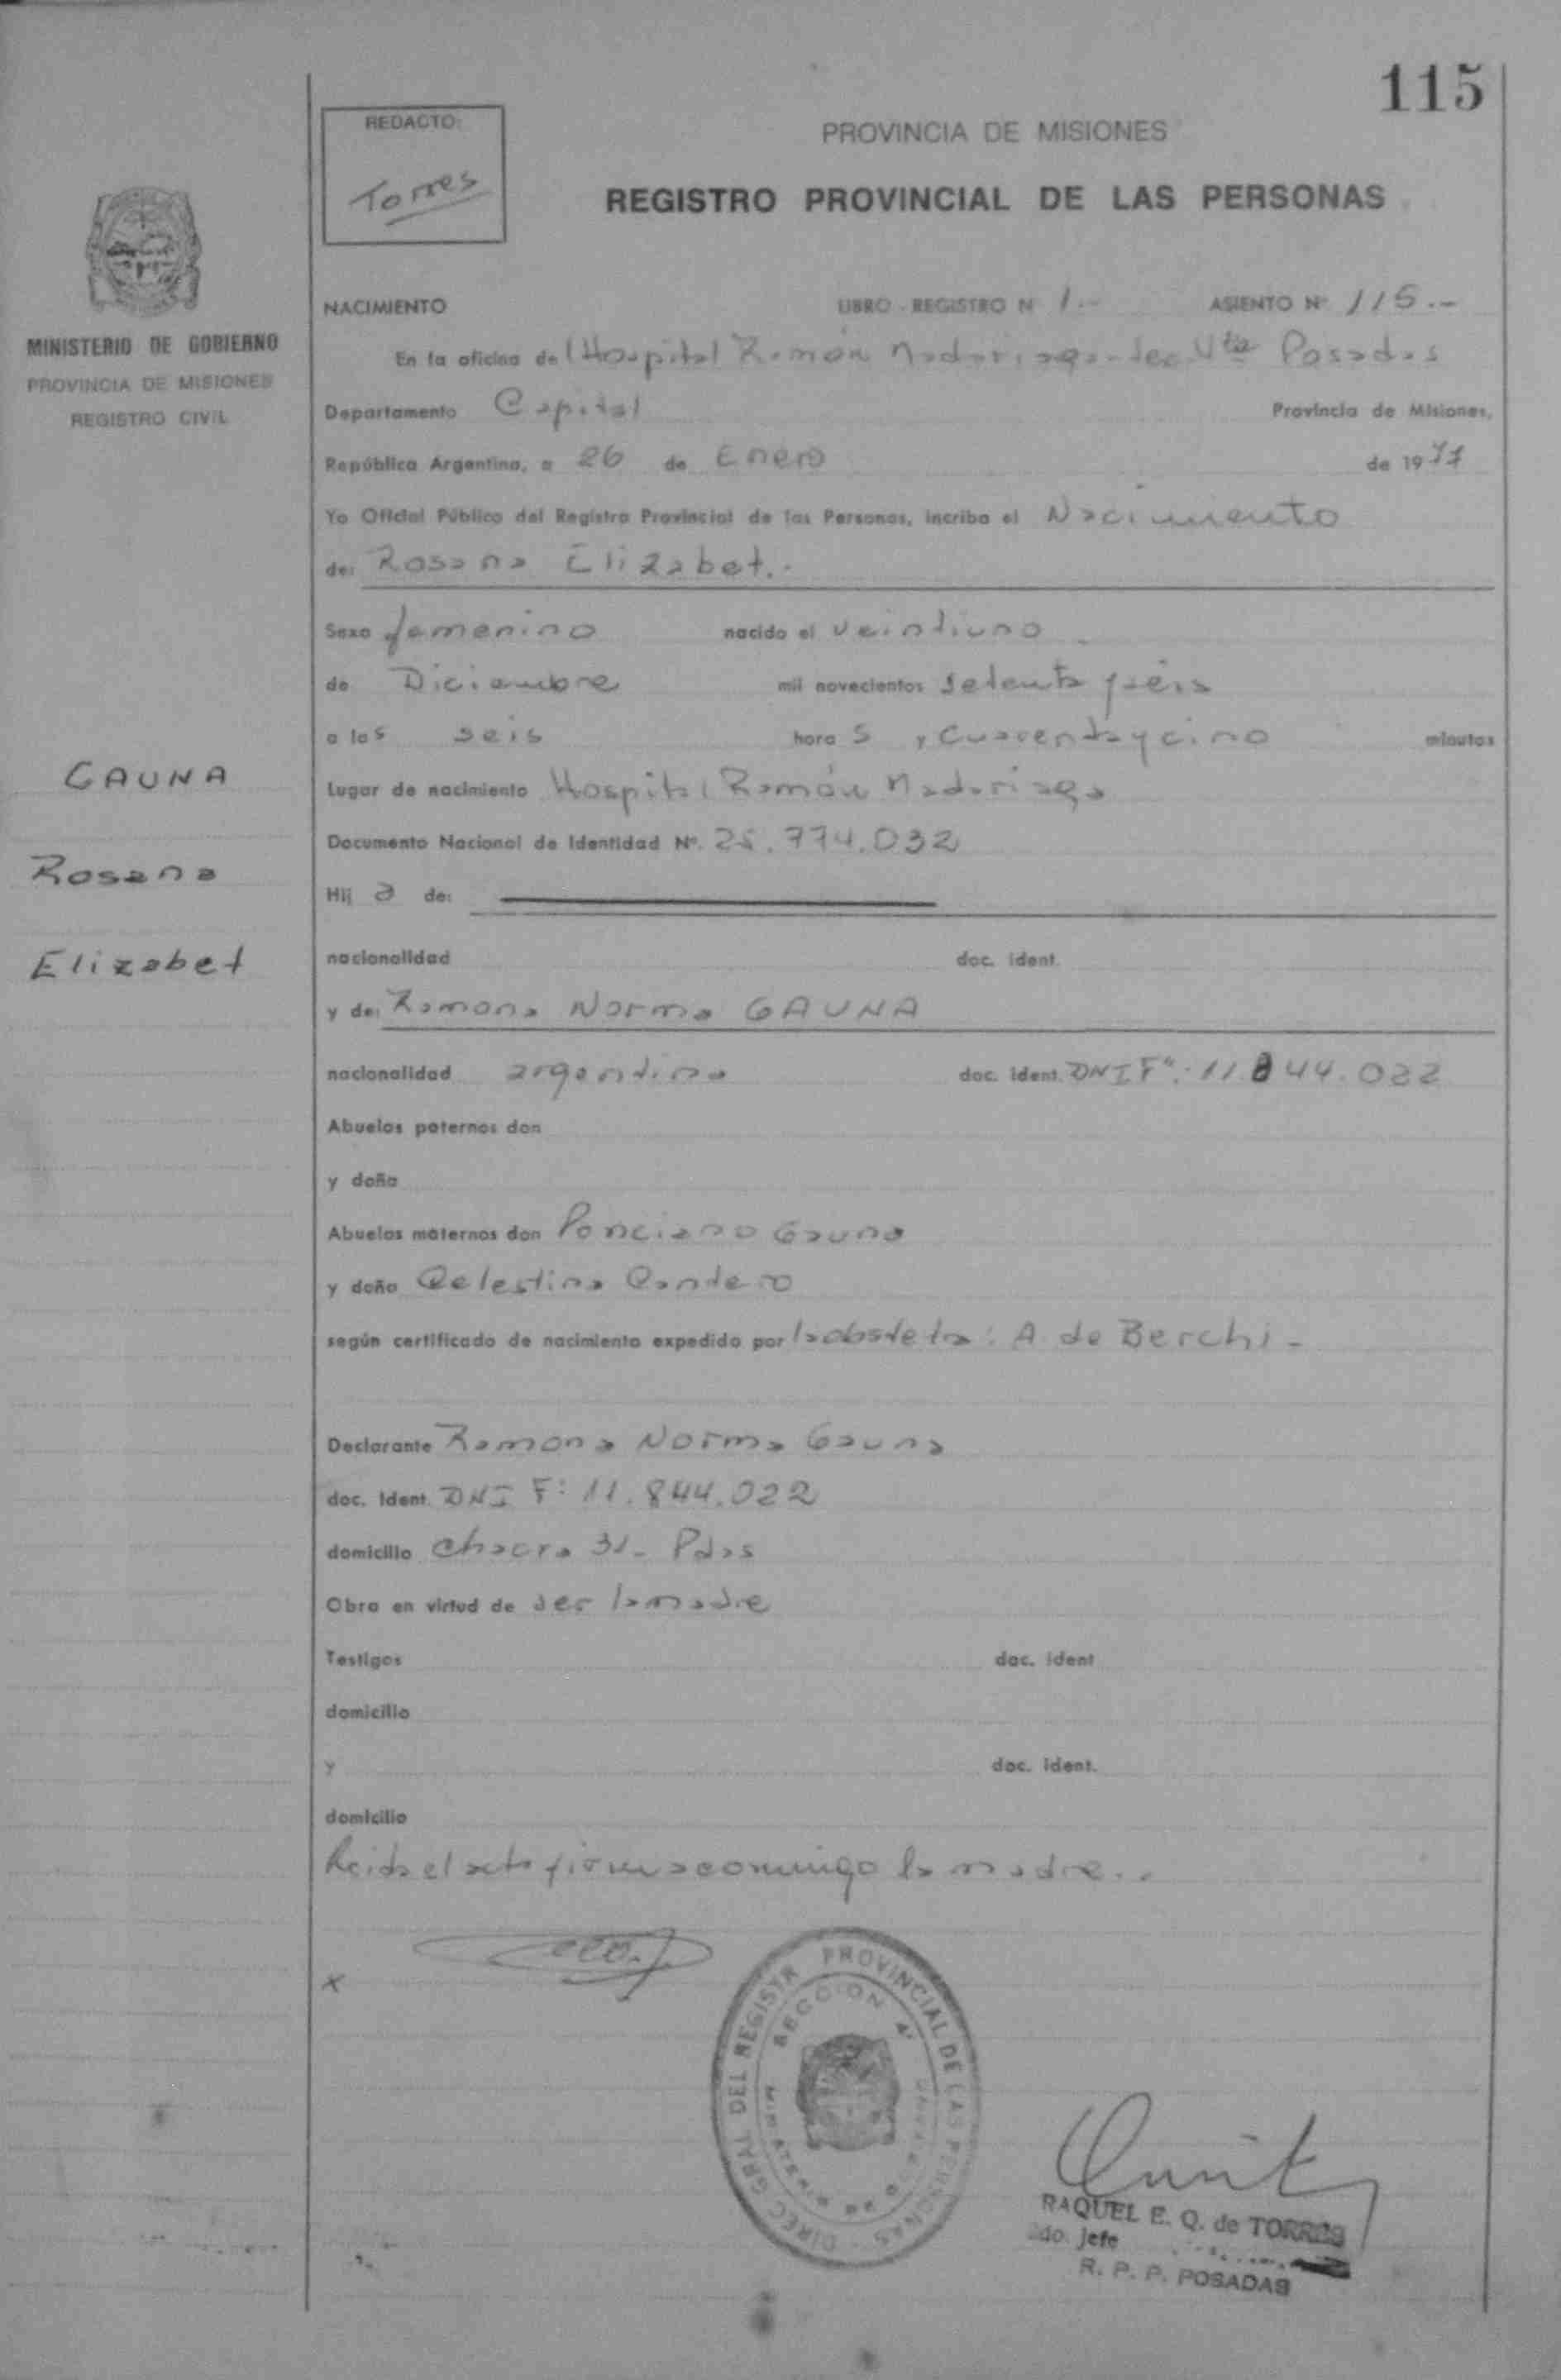 115
REDACTO:
Torres
PROVINCIA DE MISIONES
REGISTRO PROVINCIAL DE LAS PERSONAS
MINISTERIO DE GOBIERNO
PROVINCIA DE MISIONES
REGISTRO CIVIL
NACIMIENTO LIBRO - REGISTRO N 1.- ASIENTO Nº 115.-
En la oficina del Hospital Ramón Madariaga - Vta Posadas
Departamento Capital Provincia de Misiones,
República Argentina, a 26 de Enero de 1977
Yo Oficial Público del Registro Provincial de las Personas, incribo el Nacimiento
de: Rosana Elizabet.-
Sexo femenino nacido el veintiuno
de Diciembre mil novecientos setenta y seis
a las seis horas y cuarenta y cinco minutos
Lugar de nacimiento Hospital Ramón Madariaga
Documento Nacional de Identidad Nº. 25.774.032
Hija de:
nacionalidad doc. ident.
y de: Ramona Norma GAUNA
nacionalidad argentina doc. ident. DNI F": 11.844.022
Abuelos paternos don
y doña
Abuelos maternos don Ponciano Gauna
y doña Celestina
según certificado de nacimiento expedido por la obstetra: A de Berchi -
Declarante Ramona Norma Gauna
doc. Ident. DNI F: 11.844.022
domicilio Chacra 31- Pdas
Obra en virtud de ser la madre
Testigos doc. ident
domicilio
y doc. ident.
domicilio
el acta firma conmigo la madre..
x
GAUNA
Rosana
Elizabet
DIREC. GRAL. DEL REGISTR PROVINCIAL DE LAS PERSONAS
SECCION 4ª
RAQUEL E. Q. de TORRES
2do. Jefe
R. P. P. POSADAS